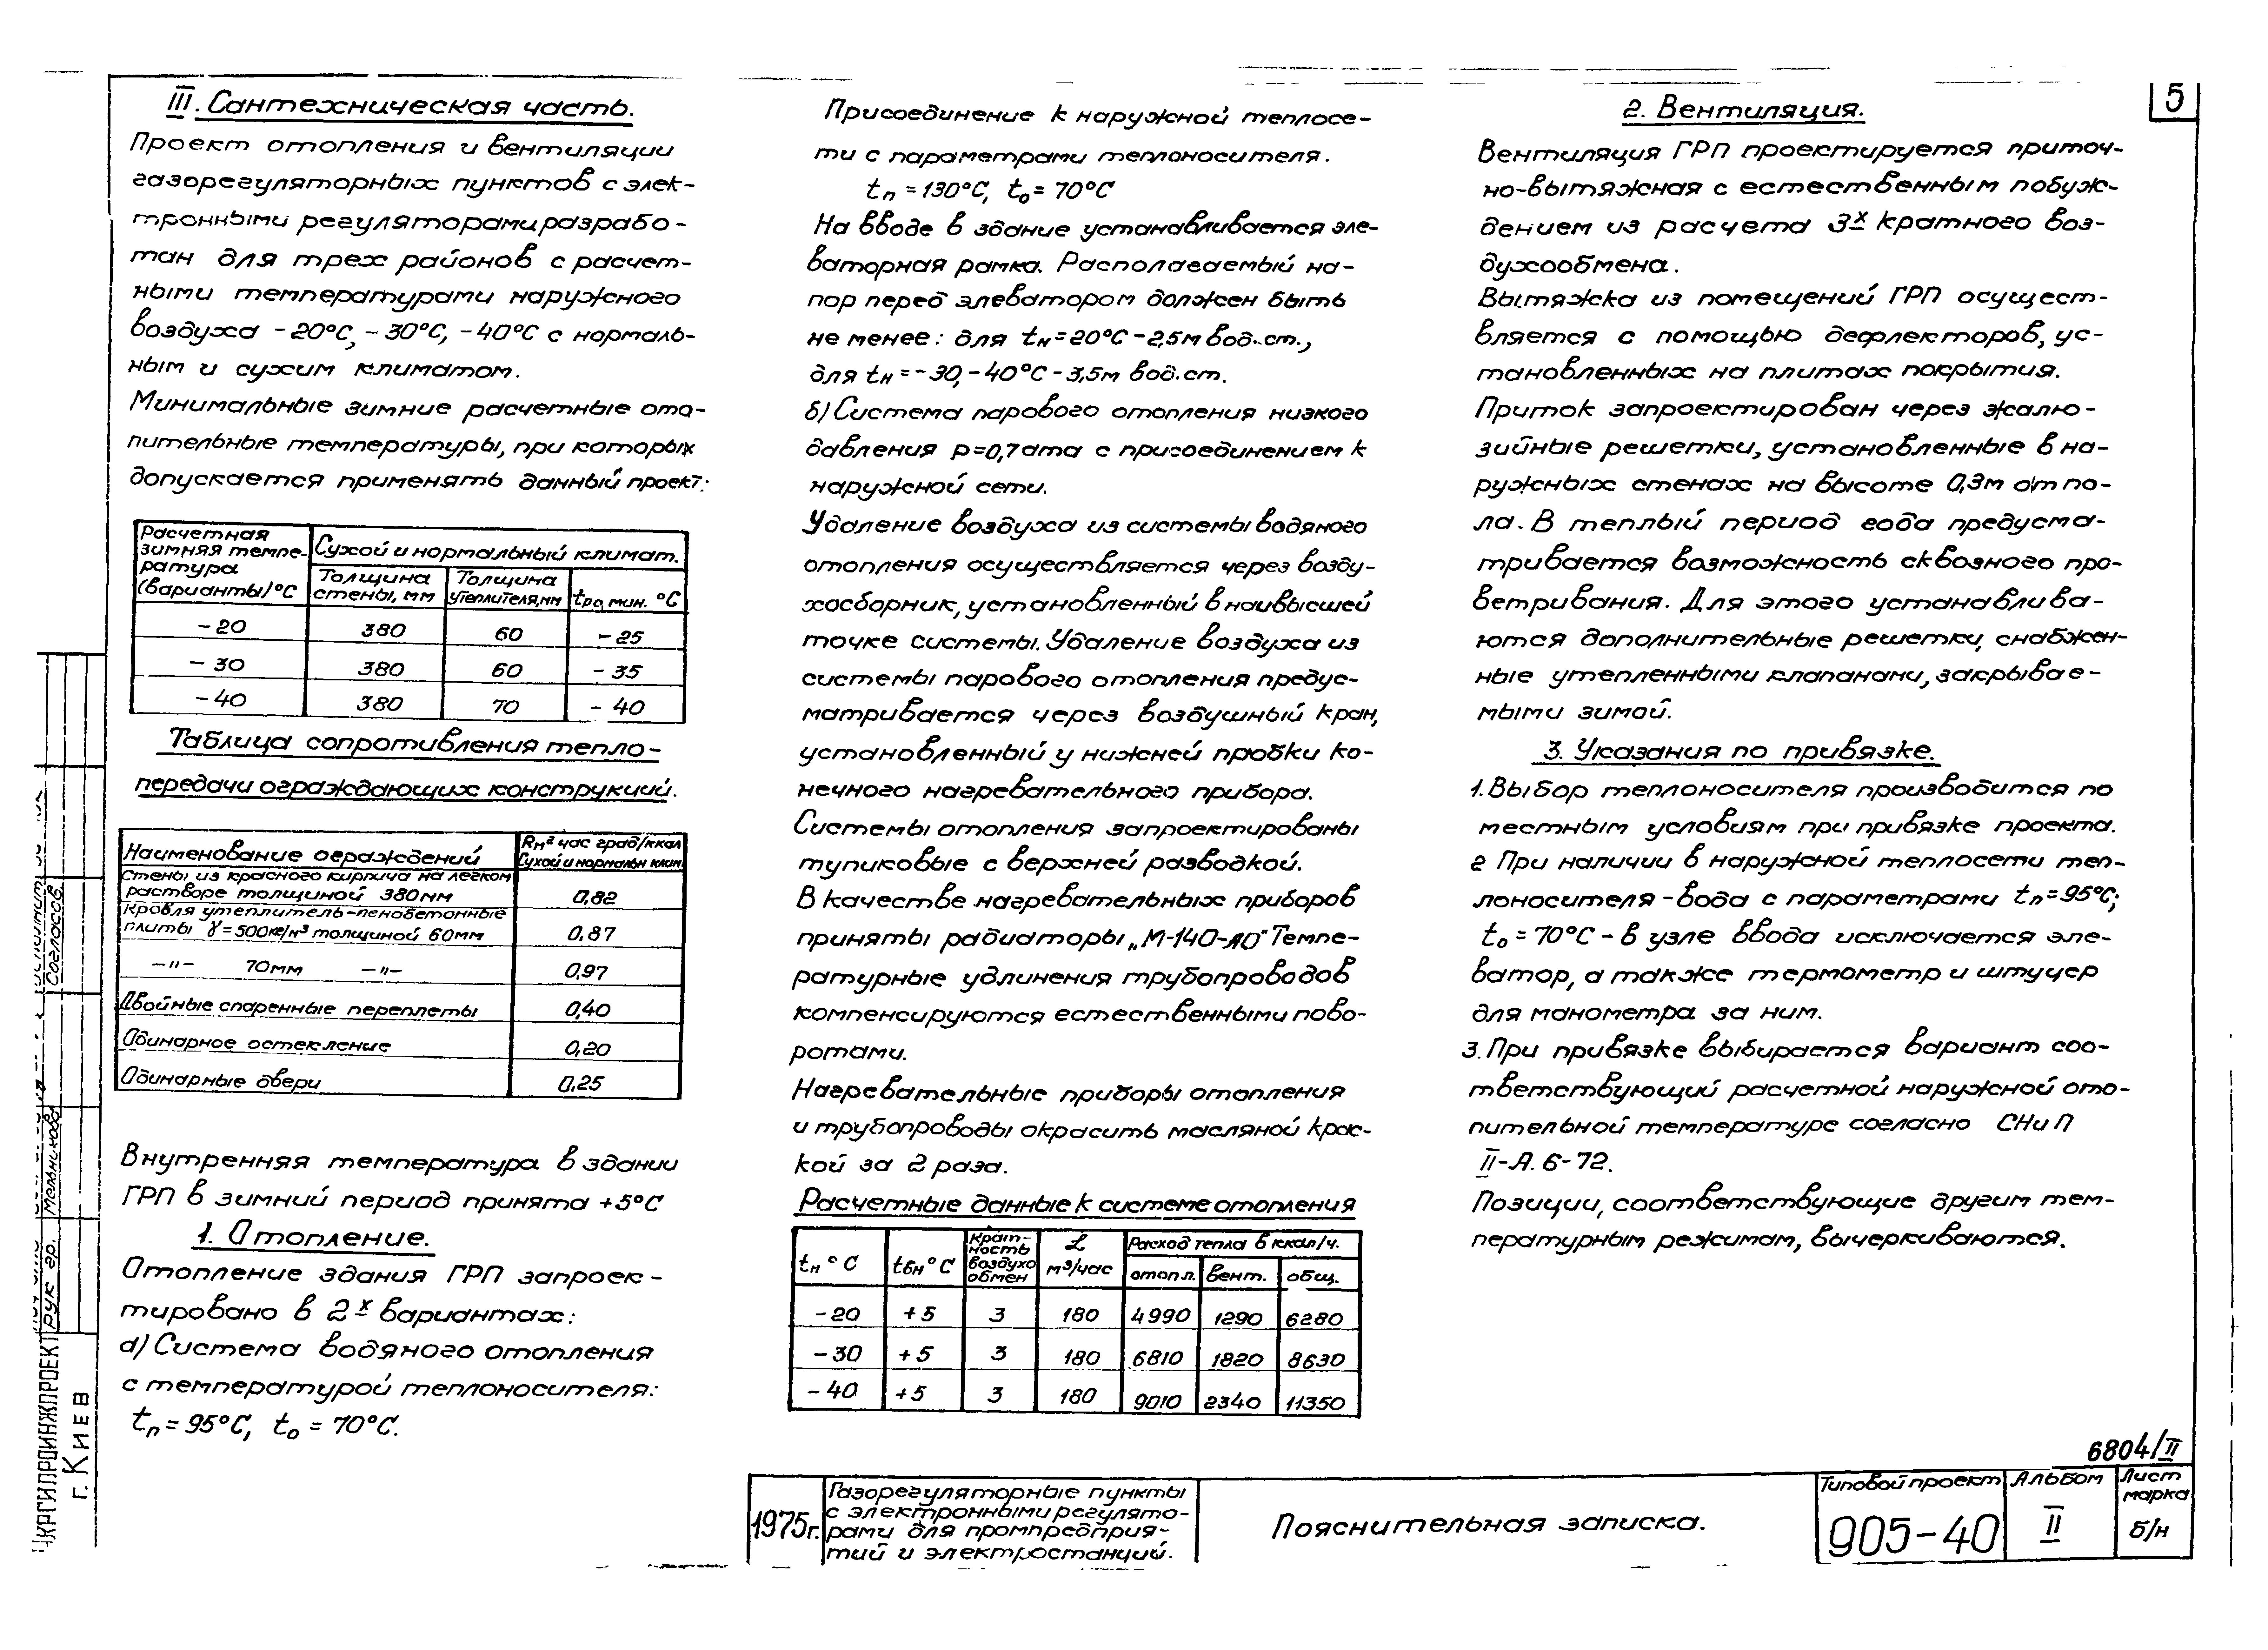 5
III. Сантехническая часть.
Проект отопления и вентиляции
газорегуляторных пунктов с элек-
тронными регуляторами разрабо-
тан для трех районов с расчет-
ными температурами наружного
воздуха -20°С, -30°С, -40°С с нормаль-
ным и сухим климатом.
Минимальные зимние расчетные ото-
пительные температуры, при которых
допускается применять данный проект:
Расчетная
зимняя темпе-
ратура
(варианты)°С
Сухой и нормальный климат.
Толщина
стены, мм
Толщина
утеплителя, мм
tро мин. °С
-20 380 60 -25
-30 380 60 -35
-40 380 70 -40
Таблица сопротивления тепло-
передачи ограждающих конструкций.
Наименование ограждений
Rм² час град/ккал
Сухой и нормальн клим.
Стены из красного кирпича на легком
растворе толщиной 380мм 0,82
Кровля утеплитель-пенобетонные
плиты γ=500кг/м³ толщиной 60мм 0,87
—"— 70мм —"— 0,97
Двойные спаренные переплеты 0,40
Одинарное остекление 0,20
Одинарные двери 0,25
Внутренняя температура в здании
ГРП в зимний период принята +5°С
1. Отопление.
Отопление здания ГРП запроек-
тировано в 2х вариантах:
а) Система водяного отопления
с температурой теплоносителя:
tп=95°С, tо=70°С.
Присоединение к наружной теплосе-
ти с параметрами теплоносителя.
tп=130°С, tо=70°С
На вводе в здание устанавливается эле-
ваторная рамка. Располагаемый на-
пор перед элеватором должен быть
не менее: для tн=20°С-2,5м вод.ст.,
для tн=-30,-40°С-3,5м вод.ст.
б) Система парового отопления низкого
давления р=0,7ата с присоединением к
наружной сети.
Удаление воздуха из системы водяного
отопления осуществляется через возду-
хосборник, установленный в наивысшей
точке системы. Удаление воздуха из
системы парового отопления предус-
матривается через воздушный кран,
установленный у нижней пробки ко-
нечного нагревательного прибора.
Системы отопления запроектированы
тупиковые с верхней разводкой.
В качестве нагревательных приборов
приняты радиаторы „М-140-АО" Темпе-
ратурные удлинения трубопроводов
компенсируются естественными пово-
ротами.
Нагревательные приборы отопления
и трубопроводы окрасить масляной крас-
кой за 2 раза.
Расчетные данные к системе отопления
tн°С
tвн°С
Крат-
ность
воздухо
обмен
L
м³/час
Расход тепла в ккал/ч.
отопл. вент. общ.
-20 +5 3 180 4990 1290 6280
-30 +5 3 180 6810 1820 8630
-40 +5 3 180 9010 2340 11350
2. Вентиляция.
Вентиляция ГРП проектируется приточ-
но-вытяжная с естественным побуж-
дением из расчета 3х кратного воз-
духообмена.
Вытяжка из помещений ГРП осущест-
вляется с помощью дефлекторов, ус-
тановленных на плитах покрытия.
Приток запроектирован через жалю-
зийные решетки, установленные в на-
ружных стенах на высоте 0,3м от по-
ла. В теплый период года предусма-
тривается возможность сквозного про-
ветривания. Для этого устанавлива-
ются дополнительные решетки, снабжен-
ные утепленными клапанами, закрывае-
мыми зимой.
3. Указания по привязке.
1. Выбор теплоносителя производится по
местным условиям при привязке проекта.
2 При наличии в наружной теплосети теп-
лоносителя-вода с параметрами tп=95°С;
tо=70°С-в узле ввода исключается эле-
ватор, а также термометр и штуцер
для манометра за ним.
3. При привязке выбирается вариант соо-
тветствующий расчетной наружной ото-
пительной температуре согласно СНиП
II-А.6-72.
Позиции, соответствующие другим тем-
пературным режимам, вычеркиваются.
6804/II
1975г.
Газорегуляторные пункты
с электронными регулято-
рами для промпредприя-
тий и электростанций.
Пояснительная записка.
Типовой проект
905-40
Альбом
II
Лист
марка
б/н
Согласов.
Рук гр. Мельникова
УКРГИПРОИНЖПРОЕКТ
г. Киев